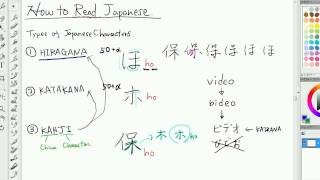 How to Read Japanese
Types of Japanese Characters
① HIRAGANA 50+α ほ ho 保 保 ほ ほ ほ ほ
② KATAKANA 50+α ホ ho
③ KAHJI 保 ho → 木 ホ ho
China Character
video
↓
bideo
↓
ビデオ ←